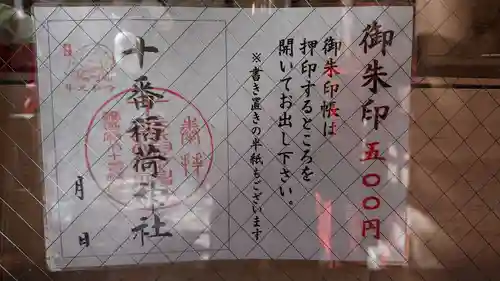 御朱印 五〇〇円
御朱印帳は
押印するところを
開いてお出し下さい。
※書き置きの半紙もございます
奉拝
十番稲荷神社
月 日